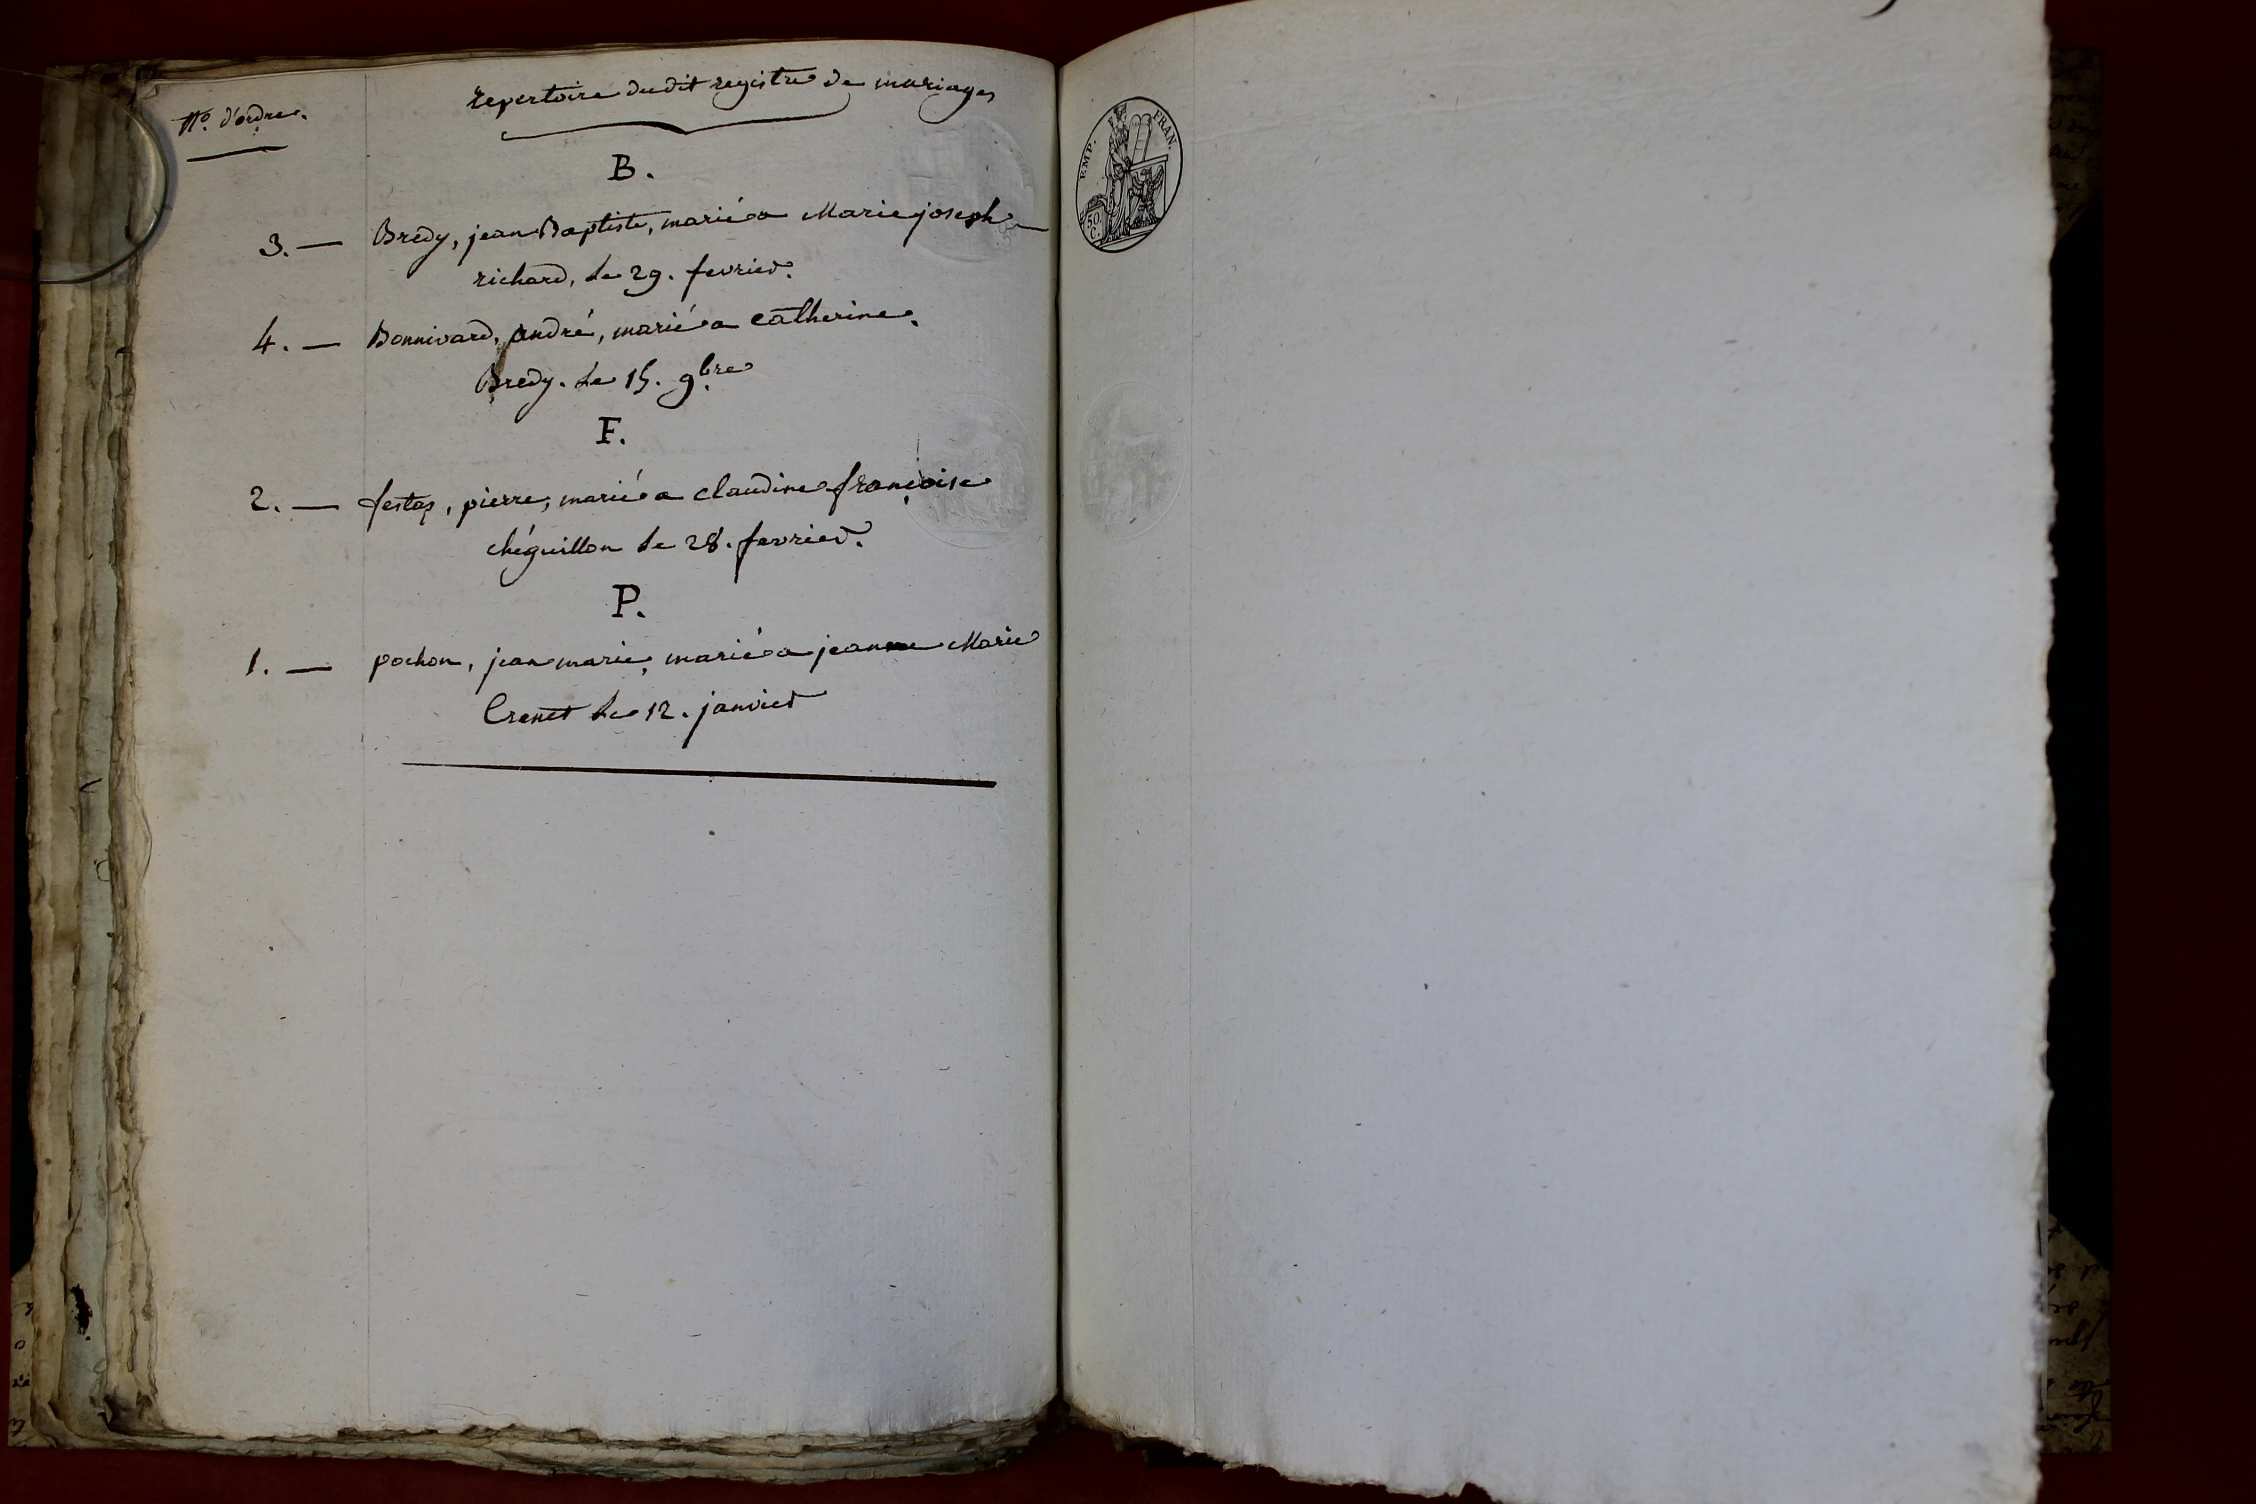 Nº. d'ordre.
repertoire du dit registre de mariages
B.
3. — Bredy, jean Baptiste, marié a Marie joseph
richard, le 29. fevrier.
4. — Bonnivard, andré, marié a catherine
Bredy. le 15. 9bre
F.
2. — festas, pierre, marié a claudine françoise
chéguillon le 28. fevrier.
P.
1. — pochon, jean marie, marié a jeanne Marie
Crenet le 12. janvier
EMP. FRAN.
50 C.